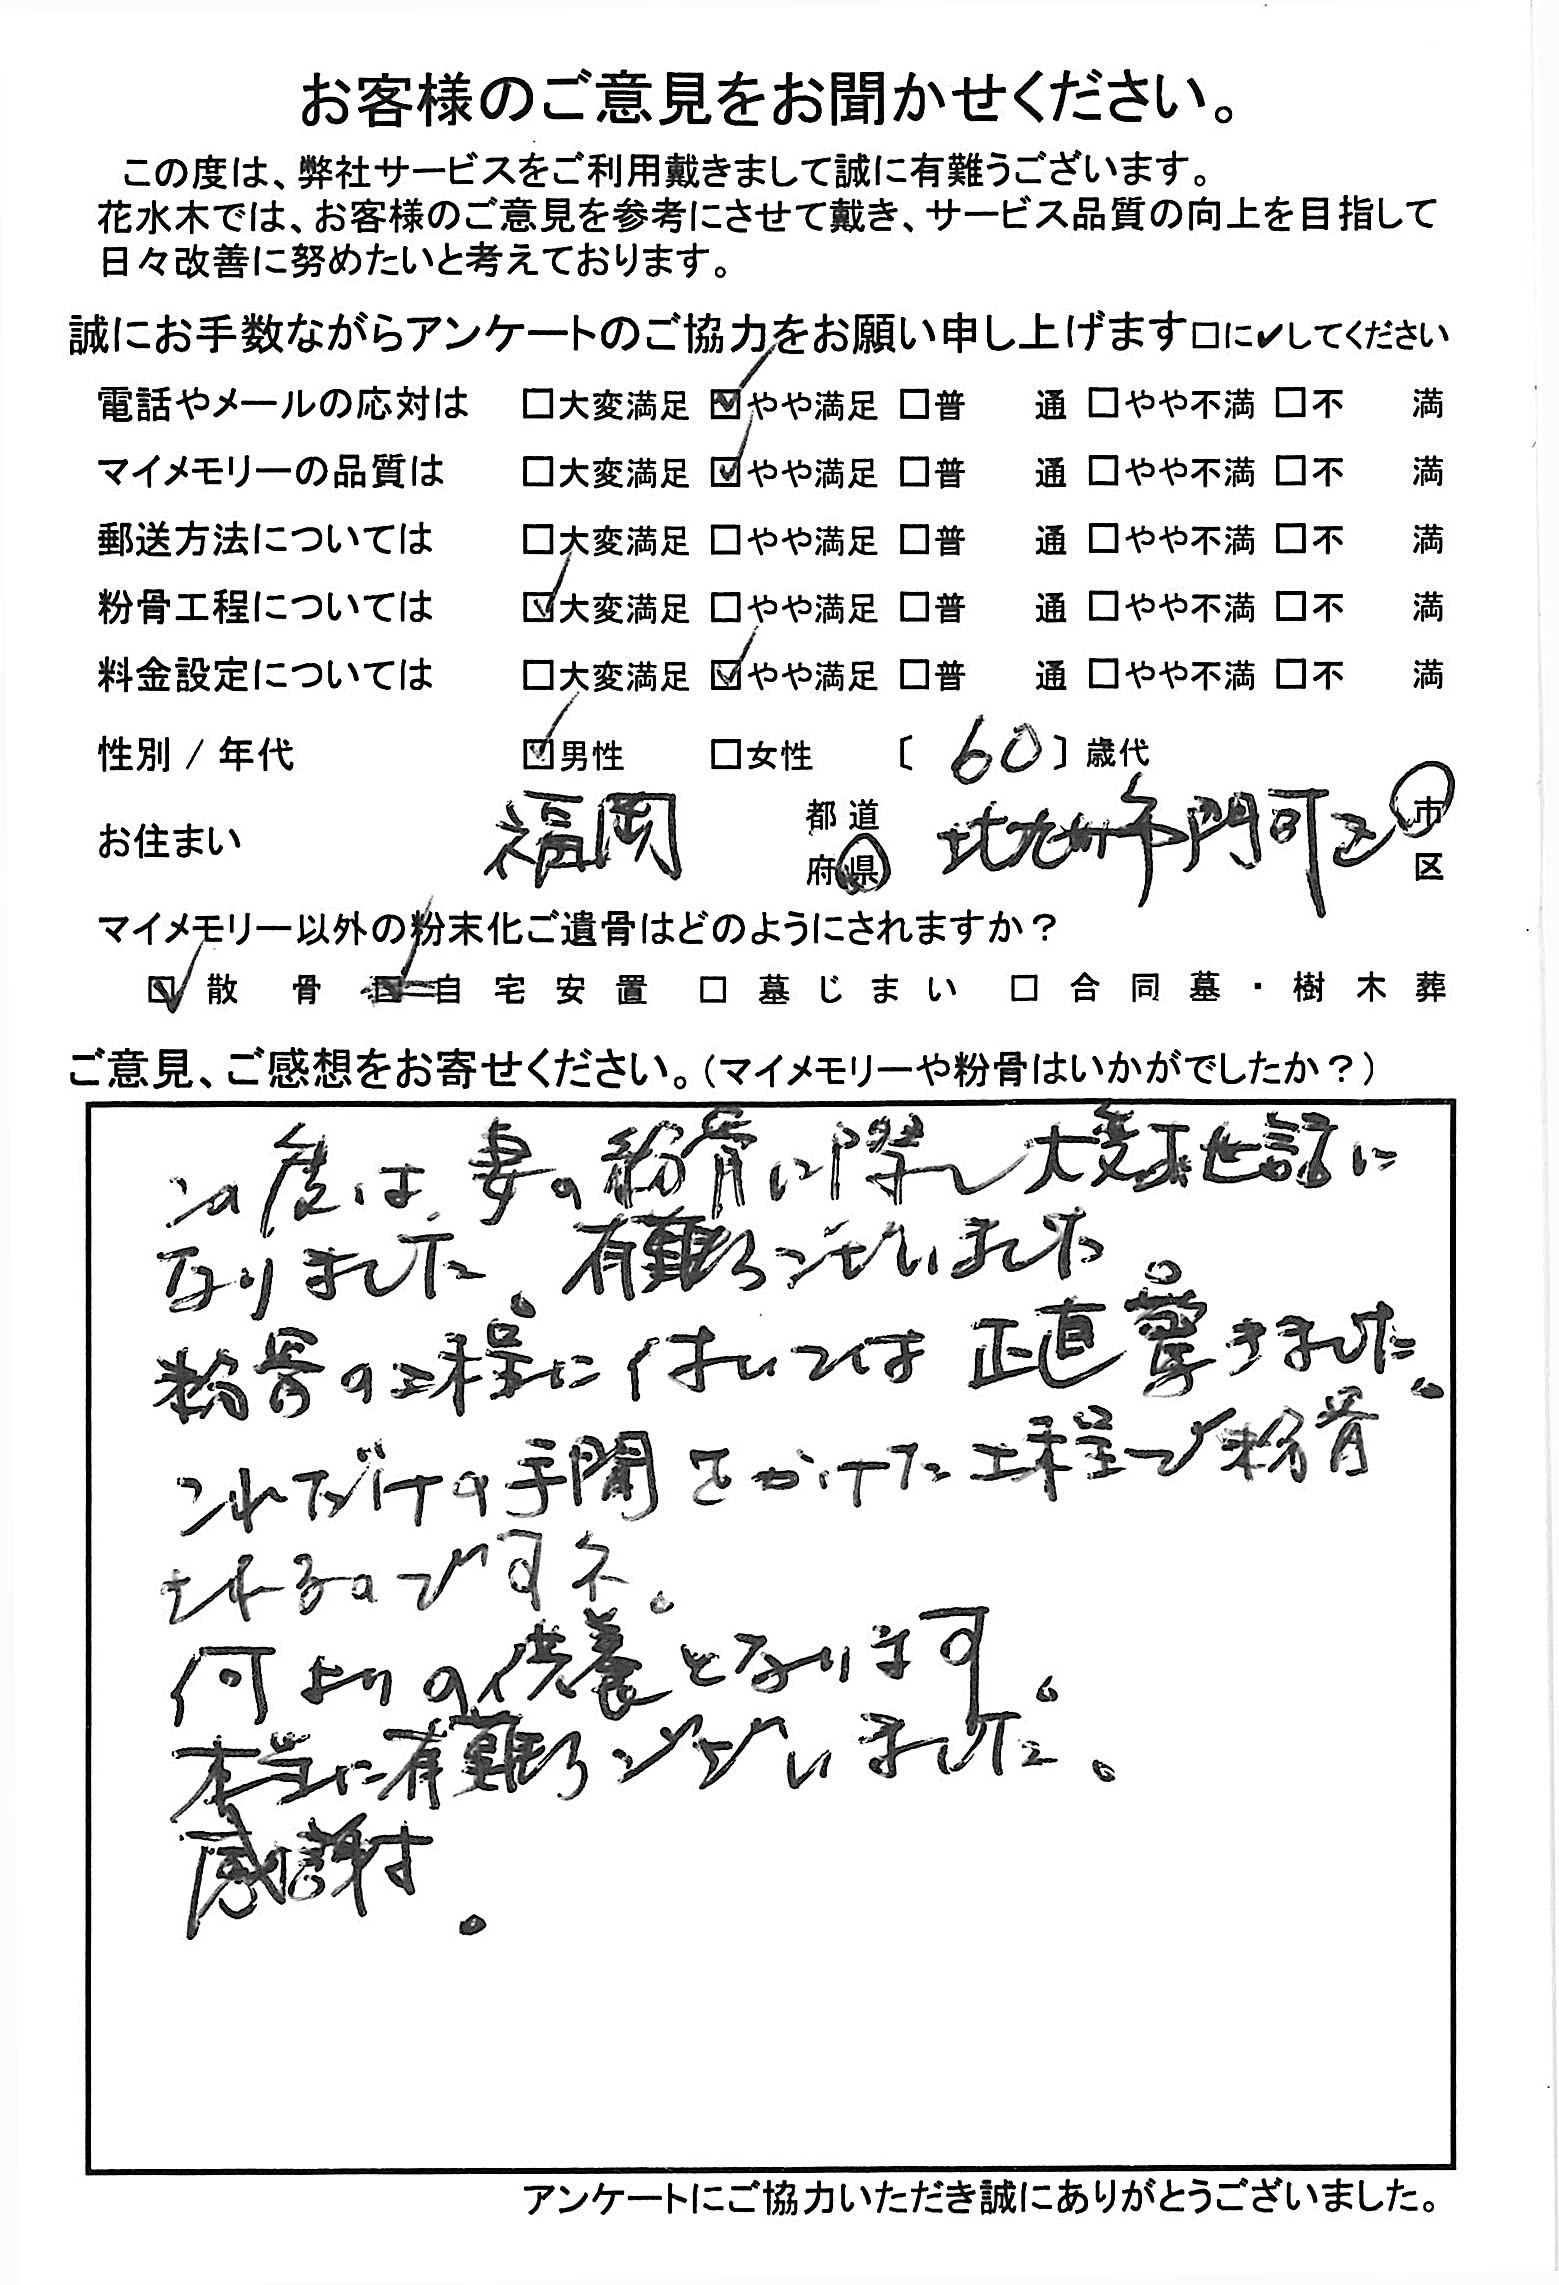 お客様のご意見をお聞かせください。
この度は、弊社サービスをご利用戴きまして誠に有難うございます。
花水木では、お客様のご意見を参考にさせて戴き、サービス品質の向上を目指して
日々改善に努めたいと考えております。
誠にお手数ながらアンケートのご協力をお願い申し上げます□に✔してください
電話やメールの応対は □大変満足 ☑やや満足 □普 通 □やや不満 □不 満
マイメモリーの品質は □大変満足 ☑やや満足 □普 通 □やや不満 □不 満
郵送方法については □大変満足 □やや満足 □普 通 □やや不満 □不 満
粉骨工程については ☑大変満足 □やや満足 □普 通 □やや不満 □不 満
料金設定については □大変満足 ☑やや満足 □普 通 □やや不満 □不 満
性別 / 年代 ☑男性 □女性 〔 60 〕歳代
お住まい 福岡 都道府県 北九州市門司区 市区
マイメモリー以外の粉末化ご遺骨はどのようにされますか？
☑散骨 ☑自宅安置 □墓じまい □合同墓・樹木葬
ご意見、ご感想をお寄せください。（マイメモリーや粉骨はいかがでしたか？）
この度は、妻の粉骨に際し大変お世話に
なりました。有難うございました。
粉骨の工程に付いては正直驚きました。
これだけの手間をかけた工程で粉骨
されるのですネ。
何よりの供養となります。
本当に有難うございました。
感謝。
アンケートにご協力いただき誠にありがとうございました。